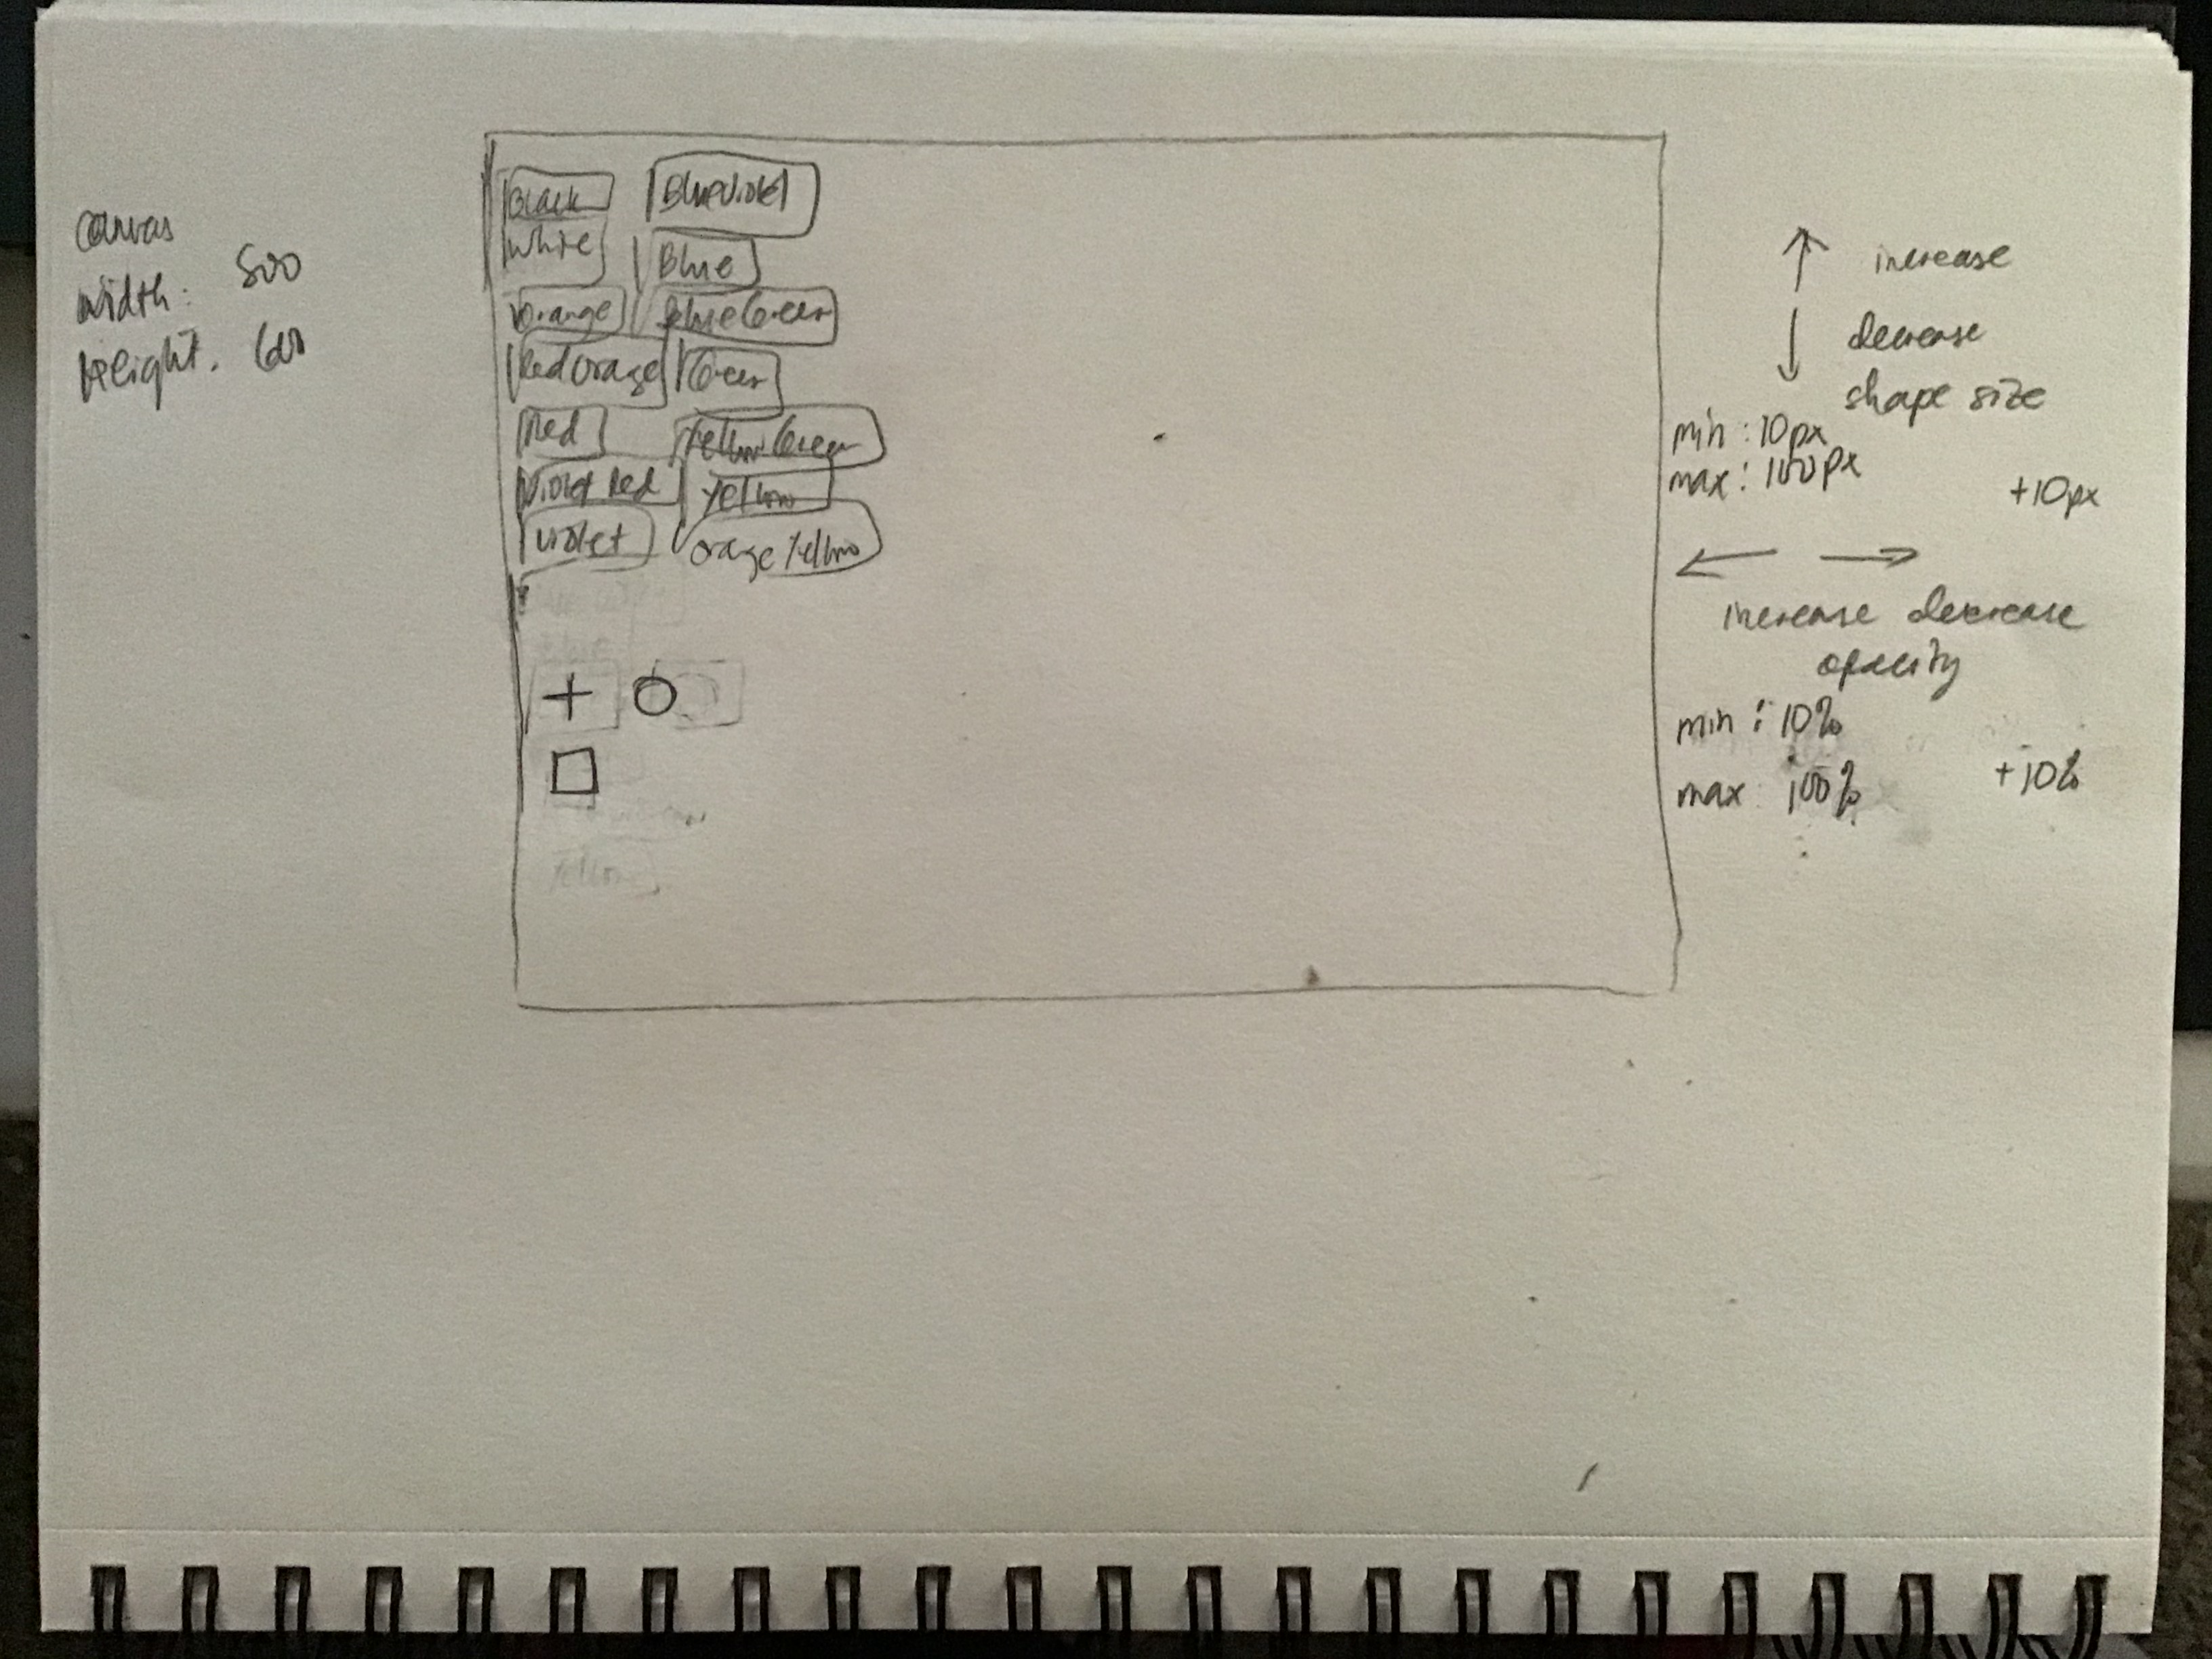 canvas
width: 800
Height. 600
Black
White
Orange
Red Orange
Red
Violet Red
Violet
Blue Violet
Blue
Blue Green
Green
Yellow Green
Yellow
Orange Yellow
increase
decrease
shape size
min : 10px
max : 100px
+10px
increase decrease
opacity
min : 10%
max 100%
+10%
Yellow